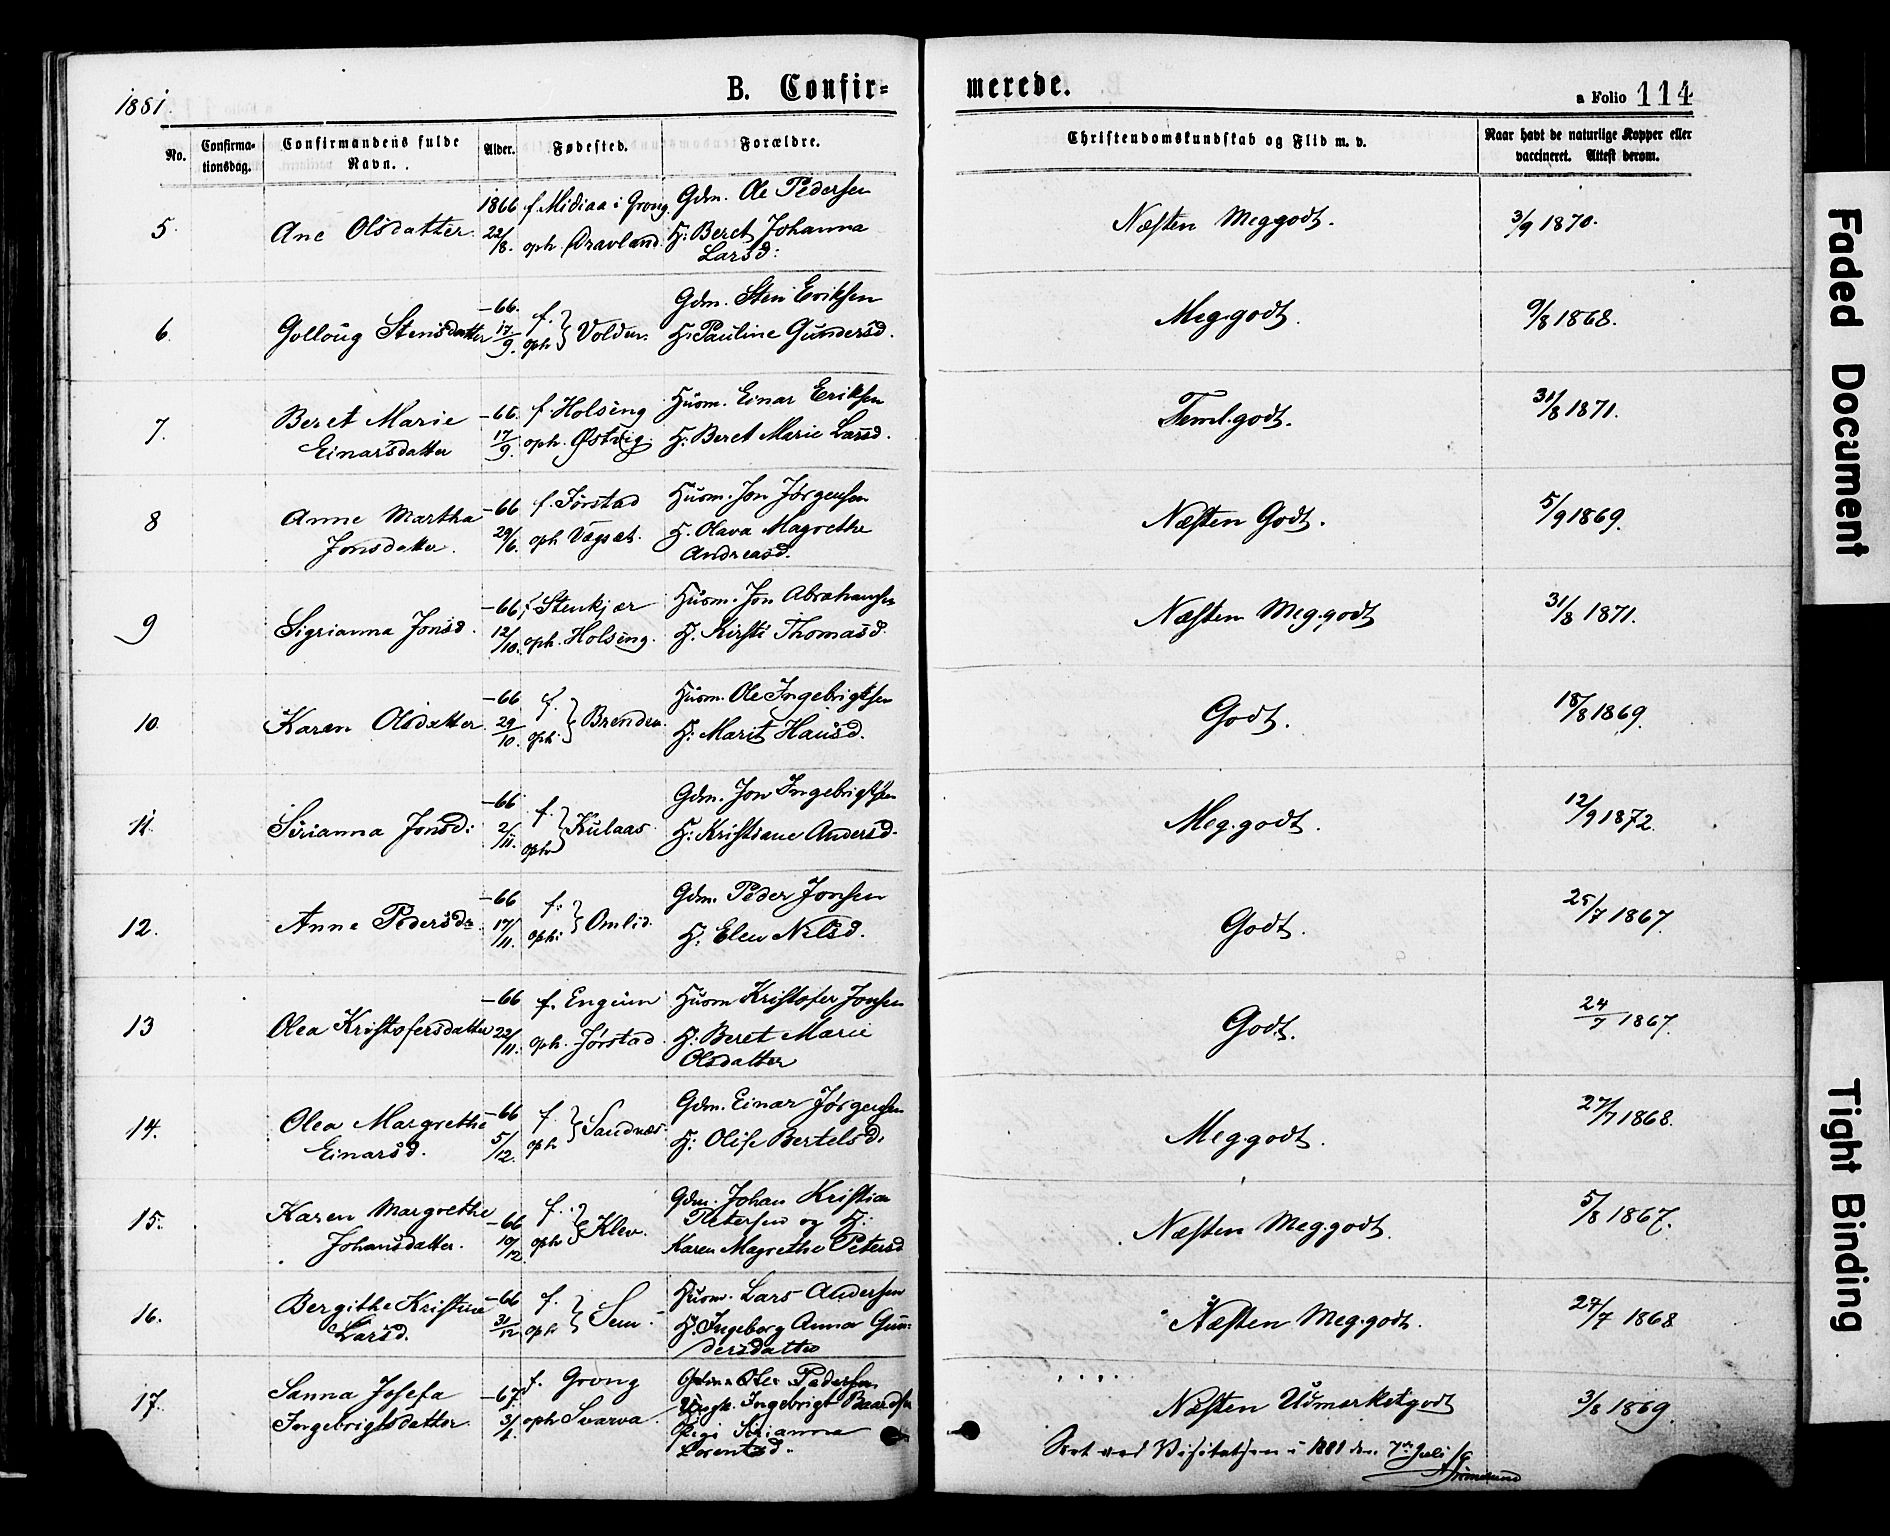 1881.
B. Confir=
merede.
a Folio 114
No.
Confirma-
tionsdag.
Confirmandens fulde
Navn.
Alder.
Fødested.
Forældre.
Christendomskundskab og Flid m. v.
Naar havt de naturlige Kopper eller
vaccineret. Attest derom.
5. Ane Olsdatter. 1866 22/8. f. Midiaa i Grong. oph. Gravland.
Gdm. Ole Pedersen
H: Beret Johanna
Larsd:
Næsten Meg.godt. 3/9 1870.
6. Golloug Stensdatter -66. 17/9. f. oph } Volden.
Gdm. Sten Eriksen
H: Pauline Gundersd.
Meg.godt. 9/8 1868.
7. Beret Marie
Einarsdatter
-66. 17/9. f. Holsing
oph. Østvig.
Husm. Einar Eriksen
H: Beret Marie Larsd.
Teml.godt. 31/8 1871.
8 Anne Martha
Jonsdatter.
-66 29/6. f. Jørstad
oph Vægset.
Husm. Jon Jørgensen
H. Olava Magrethe
Andreasd.
Næsten Godt. 5/9 1869.
9 Sigrianna Jonsd. -66 12/10. f. Stenkjær
oph. Holsing.
Husm. Jon Abrahamsen
H. Kirsti Thomasd.
Næsten Meg.godt 31/8 1871.
10. Karen Olsdatter. -66 29/10. f. oph. } Brenden.
Husm. Ole Ingebrigtsen
H: Marit Hansd.
Godt. 18/8 1869.
11. Sirianna Jonsd: -66 2/11. f. oph } Kulaas.
Gdm. Jon Ingebrigtsen
H: Kristiane Andersd.
Meg.godt. 12/9 1872.
12. Anne Pedersd. -66 17/11. f. oph: } Omlid.
Gdm. Peder Jonsen
H: Elen Nilsd.
Godt. 25/7 1867.
13 Olea Kristofersdatter -66 22/11. f. Engum
oph. Jørstad.
Husm Kristofer Jonsen
H: Beret Marie
Olsdatter
Godt. 24/7 1867.
14. Olea Margrethe
Einarsd.
-66 5/12. f. oph } Sandnæs.
Gdm. Einar Jørgensen
H: Olise Bertelsd.
Meg.godt. 27/7 1868.
15. Karen Margrethe
Johansdatter.
-66 19/12. f. oph } Klev.
Gdm. Johan Kristian
Petersen og H:
Karen Magrethe Petersd
Næsten Meg.godt. 5/8 1867.
16. Bergithe Kristine
Larsd.
-66 31/12. f. oph } Sem.
Husm. Lars Andersen
H. Ingeborg Anna Gun-
dersdatter
Næsten Meg.godt. 27/7 1868
17. Sanna Josefa
Ingebrigtsdatter.
-67. 3/1. f. Grong
oph Svarva.
Gdm. Ole Pedersen
Ungk. Ingebrigt Baardsen
Pige Sirianna
Lorentsd.
Næsten Udmerket godt 3/8 1869.
Seet ved Visitatsen i 1881 den 7de Juli
Faded Document
Tight Binding